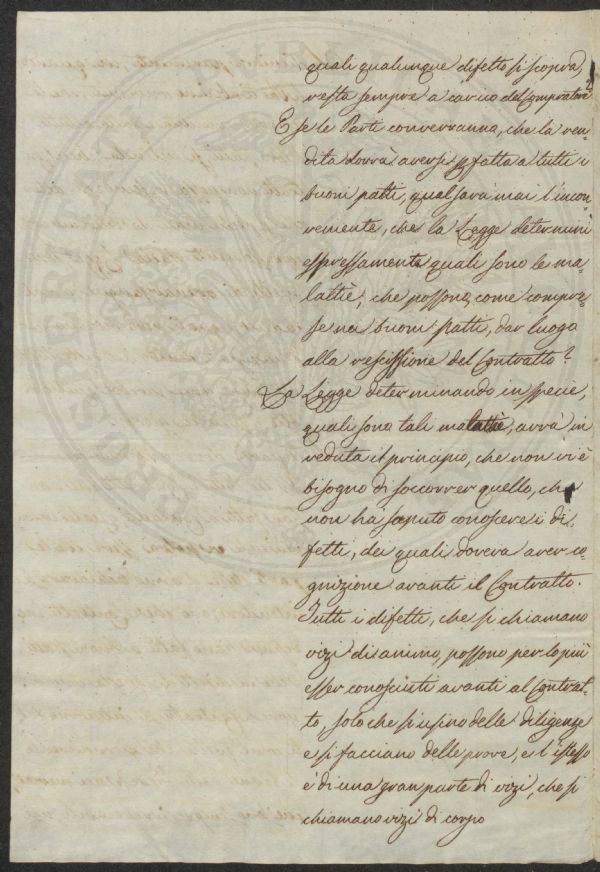 quali qualunque difetto si scopra,
resta sempre a carico del Compratore?
E se le Parti converranno, che la ven-
dita dovrà aversi fatta a tutti i
buoni patti, qual sara mai l'incon-
veniente, che la Legge determini
espressamente quali sono le ma-
lattie, che possono, come compra-
se na buoni patti, dar luogo
alla rescissione del Contratto?
La Legge determinando in specie,
quali sono tali malattie, avrà in
veduta il principio, che non vi è
bisogno di soccorrer quello, che
non ha saputo conoscere i di-
fetti, dei quali doveva aver co-
gnizione avanti il Contratto.
Tutti i difetti, che si chiamano
vizi di animo, possono per lo più
esser conosciuti avanti al Contrat-
to, solo che si usino delle diligenze
e si facciano delle prove, e l'istesso
è di una gran parte di vizi, che si
chiamano vizi di corpo